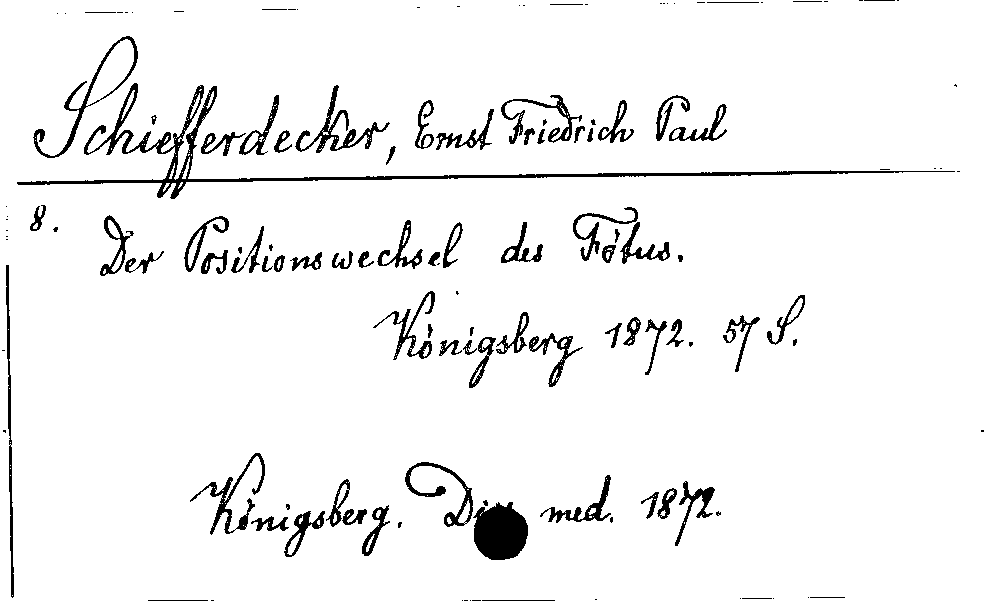 Schiefferdecker, Ernst Friedrich Paul
8.
Der Positionswechsel des Fötus.
Königsberg 1872. 57 S.
Königsberg. Diss med. 1872.